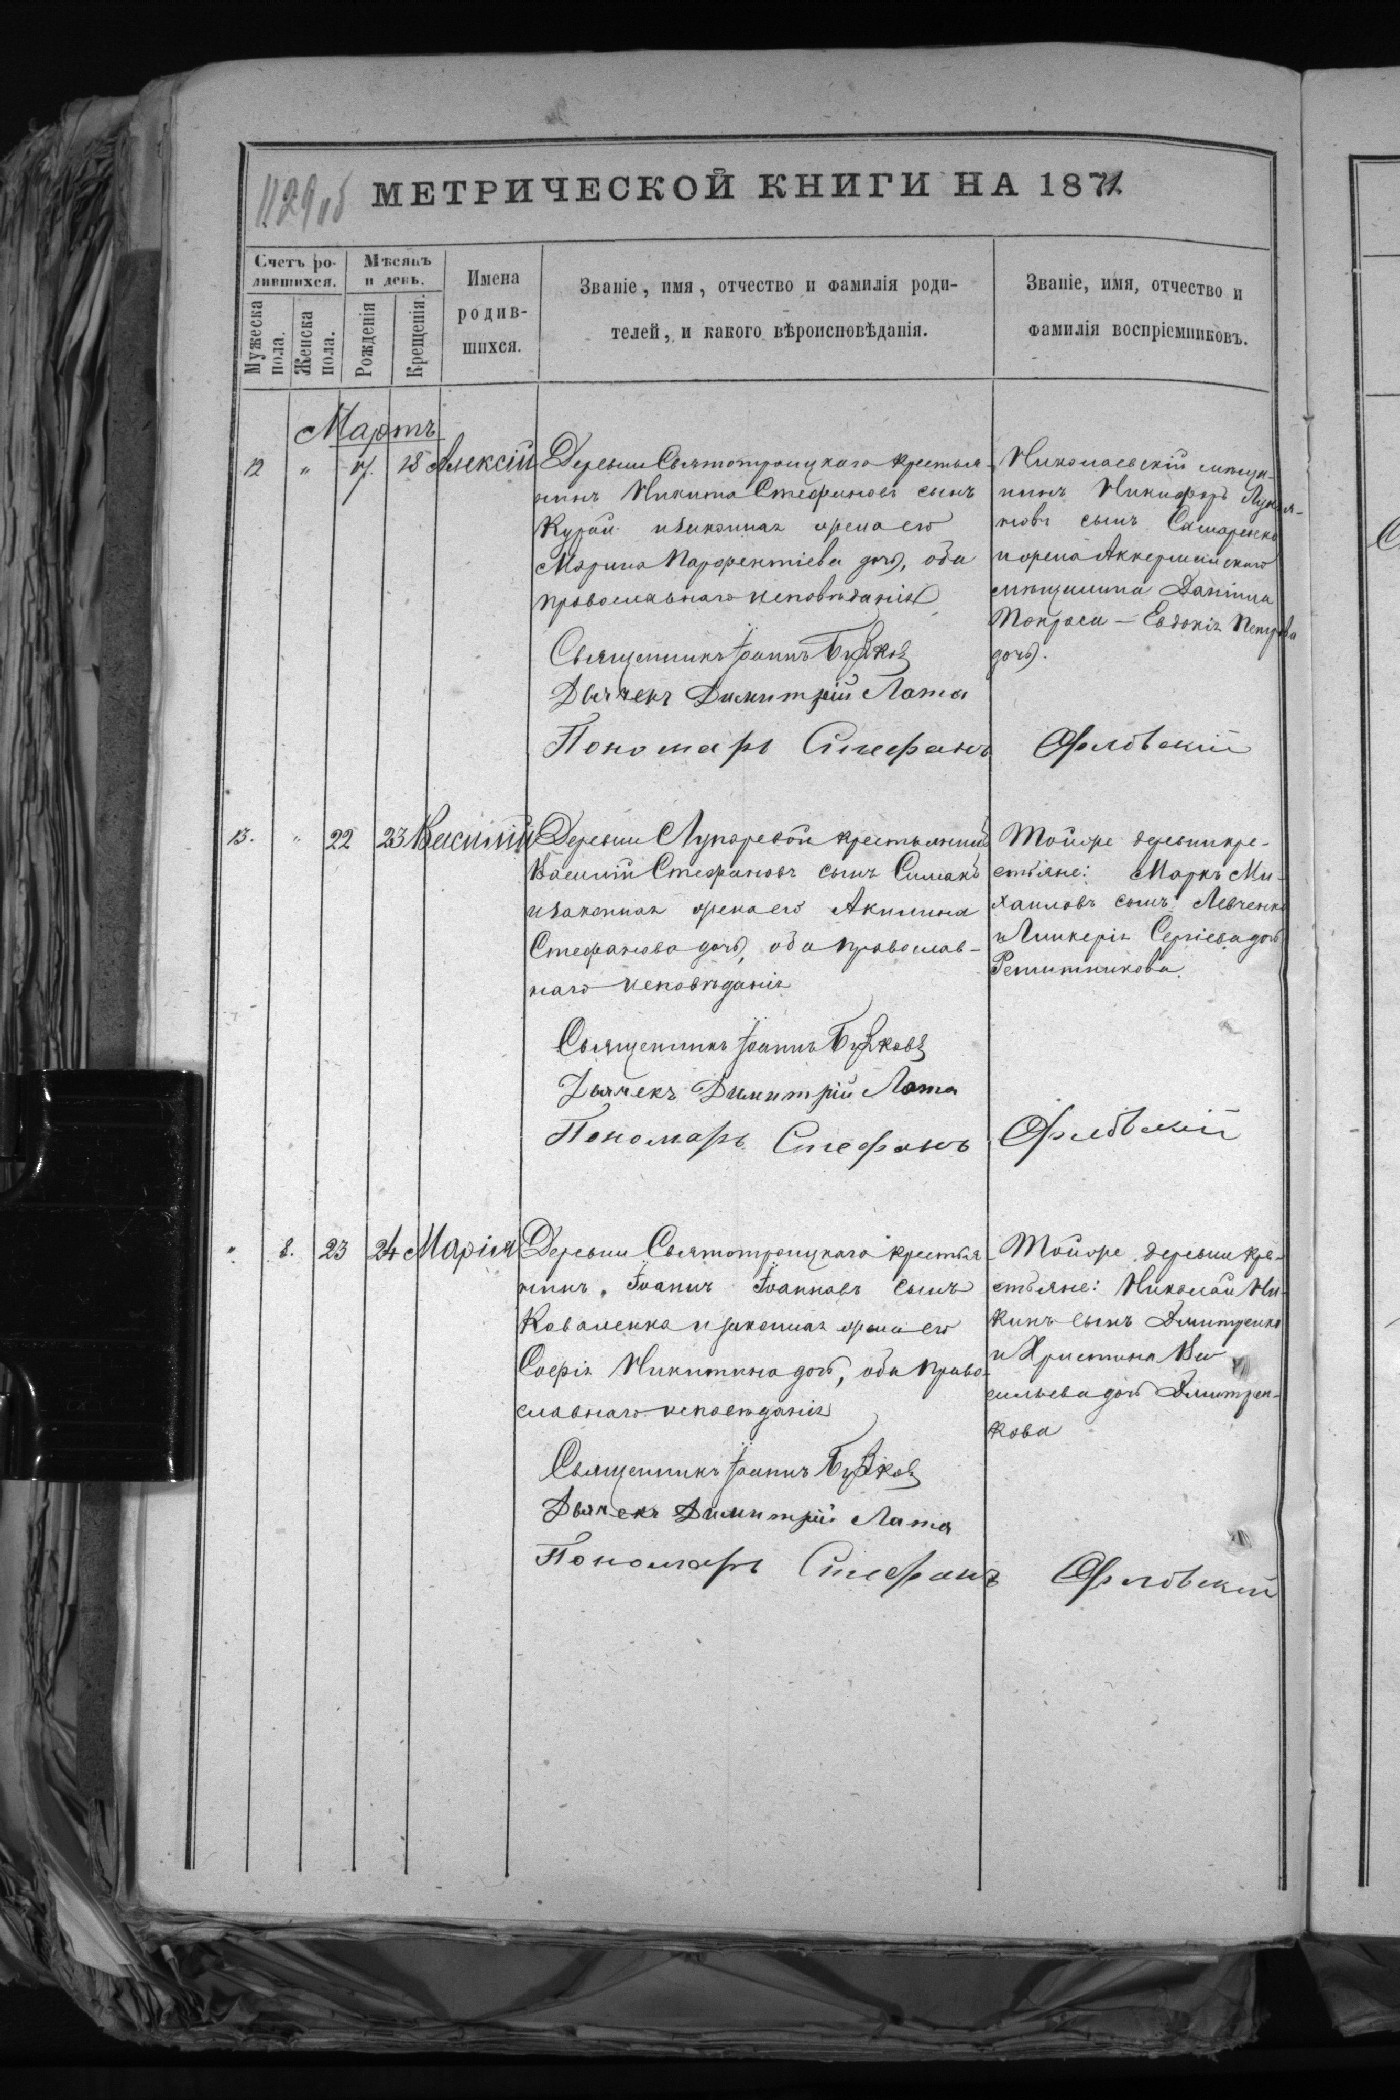 1129 об
МЕТРИЧЕСКОЙ КНИГИ НА 1871
Счетъ ро-
дившихся.
Мѣсяцъ
и день.
Мужеска
пола.
Женска
пола.
Рожденія
Крещенія.
Имена
родив-
шихся.
Званіе, имя, отчество и фамилія роди-
телей, и какого вѣроисповѣданія.
Званіе, имя, отчество и
фамилія воспріемниковъ.
Мартъ
12 " 17. 18 Алексій
Деревни Святотроицкаго крестья-
нинъ Никита Стефановъ сынъ
Курай и законная жена его
Марина Парфентіева дочь, оба
православнаго исповѣданія
Священникъ Іоаннъ
Дьячекъ Димитрій Лата
Пономарь Стефанъ Орловскій
Николаевскій мѣща-
нинъ Никифоръ Лукья-
новъ сынъ Самаренко
и жена Аккерманскаго
мѣщанина Даніила
Покраса — Евдокія Петрова
дочь.
13. " 22 23 Василій
Деревни Лупаревой крестьянинъ
Василій Стефановъ сынъ Симакъ
и законная жена его Акилина
Стефанова дочь, оба православ-
наго исповѣданія
Священникъ Іоаннъ
Дьячекъ Димитрій Лата
Пономарь Стефанъ Орловскій
Тойже деревни кре-
стьяне: Маркъ Ми-
хаиловъ сынъ Левченко
и Гликерія Сергіева дочь
Решитникова.
" 8. 23 24 Марія
Деревни Святотроицкаго крестья-
нинъ Іоаннъ Іоанновъ сынъ
Коваленко и законная жена его
Софія Никитина дочь, оба право-
славнаго исповѣданія
Священникъ Іоаннъ
Дьячекъ Димитрій Лата
Пономарь Стефанъ Орловскій
Тойже деревни кре-
стьяне: Николай Ни-
кинъ сынъ Дмитренко
и Христина Ва-
сильева дочь Дмитрен-
кова